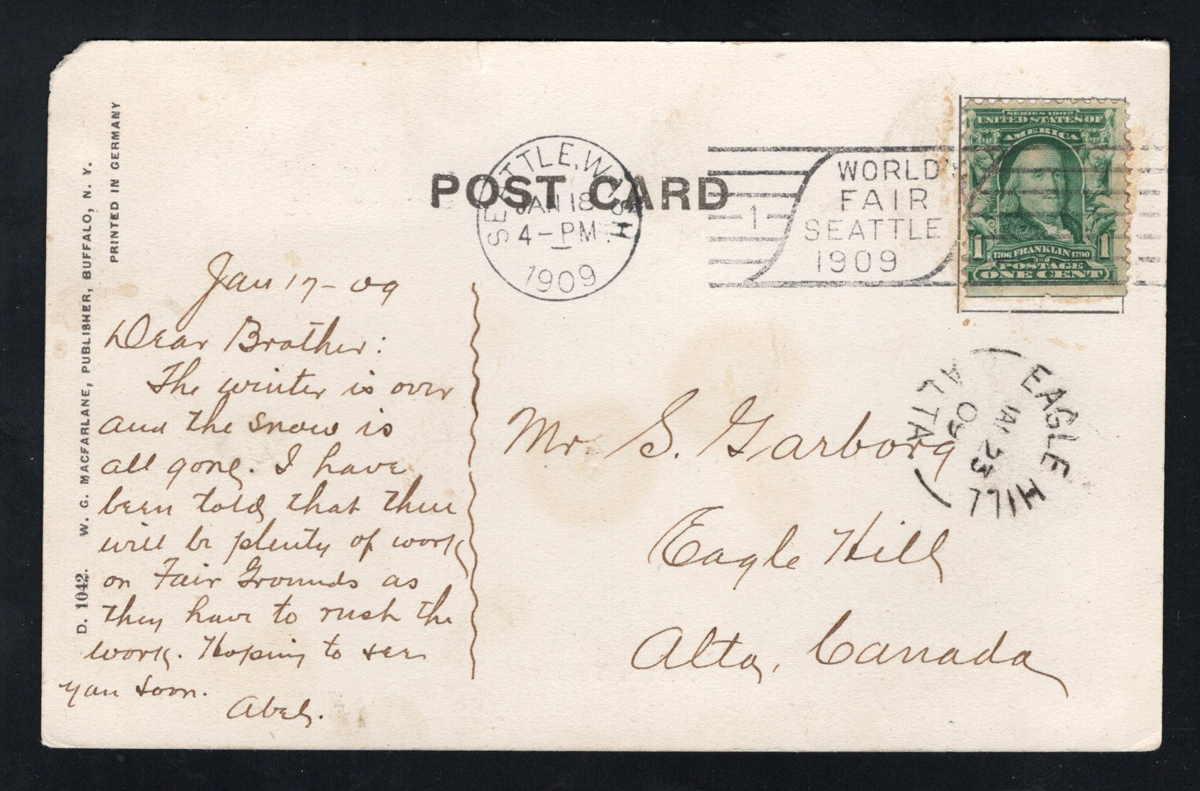 POST CARD
SEATTLE, WASH.
JAN 18
4 - PM
1909
1
WORLD'S
FAIR
SEATTLE
1909
SERIES 1902
UNITED STATES OF
AMERICA
1 1706 FRANKLIN 1790 1
POSTAGE
ONE CENT
PRINTED IN GERMANY
D. 1042. W. G. MACFARLANE, PUBLISHER, BUFFALO, N. Y.
Jan 17-09
Dear Brother:
The winter is over
and the snow is
all gone. I have
been told that there
will be plenty of work
on Fair Grounds as
they have to rush the
work. Hoping to see
you soon.
Abel.
EAGLE HILL
JAN 23
09
ALTA
Mr. S. Garborg
Eagle Hill
Alta, Canada